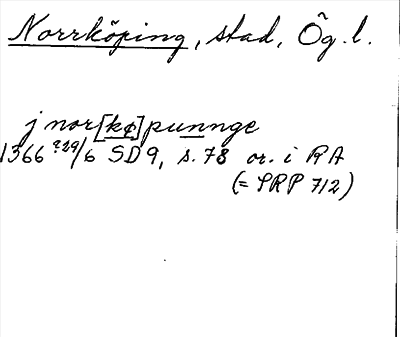 Norrköping, stad, Ög. l.
j nor[kø]punnge
1366 ?29/6 SD 9, s. 78 or. i RA
(= SRP 712)